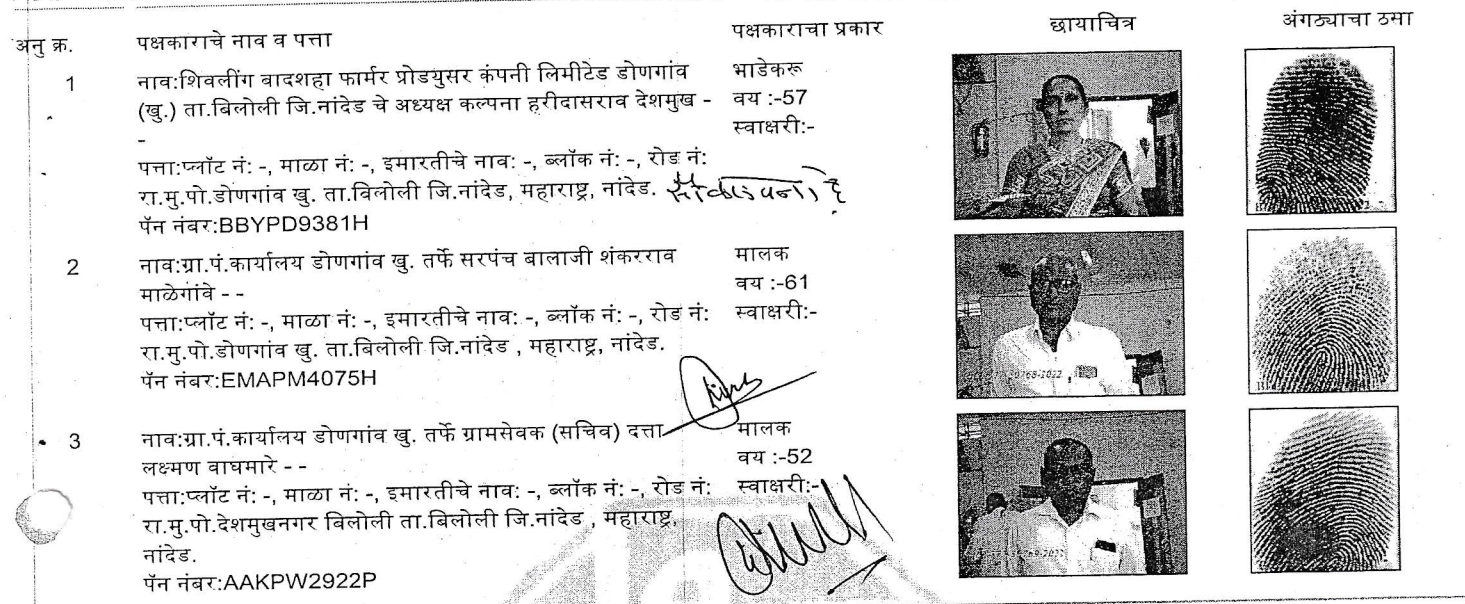 अनु क्र. पक्षकाराचे नाव व पत्ता पक्षकाराचा प्रकार छायाचित्र अंगठ्याचा ठसा
1 नाव:शिवलींग बादशहा फार्मर प्रोडयुसर कंपनी लिमीटेड डोणगांव भाडेकरू
(खु.) ता.बिलोली जि.नांदेड चे अध्यक्ष कल्पना हरीदासराव देशमुख - वय :-57
- स्वाक्षरी:-
पत्ता:प्लॉट नं: -, माळा नं: -, इमारतीचे नाव: -, ब्लॉक नं: -, रोड नं:
रा.मु.पो.डोणगांव खु. ता.विलोली जि.नांदेड, महाराष्ट्र, नांदेड.
पॅन नंबर:BBYPD9381H
2 नाव:ग्रा.पं.कार्यालय डोणगांव खु. तर्फे सरपंच बालाजी शंकरराव मालक
माळेगांवे - - वय :-61
पत्ता:प्लॉट नं: -, माळा नं: -, इमारतीचे नाव: -, ब्लॉक नं: -, रोड नं: स्वाक्षरी:-
रा.मु.पो.डोणगांव खु. ता.बिलोली जि.नांदेड , महाराष्ट्र, नांदेड.
पॅन नंबर:EMAPM4075H
3 नाव:ग्रा.पं.कार्यालय डोणगांव खु. तर्फे ग्रामसेवक (सचिव) दत्ता मालक
लक्ष्मण वाघमारे - - वय :-52
पत्ता:प्लॉट नं: -, माळा नं: -, इमारतीचे नाव: -, ब्लॉक नं: -, रोड नं: स्वाक्षरी:-
रा.मु.पो.देशमुखनगर विलोली ता.बिलोली जि.नांदेड , महाराष्ट्र,
नांदेड.
पॅन नंबर:AAKPW2922P